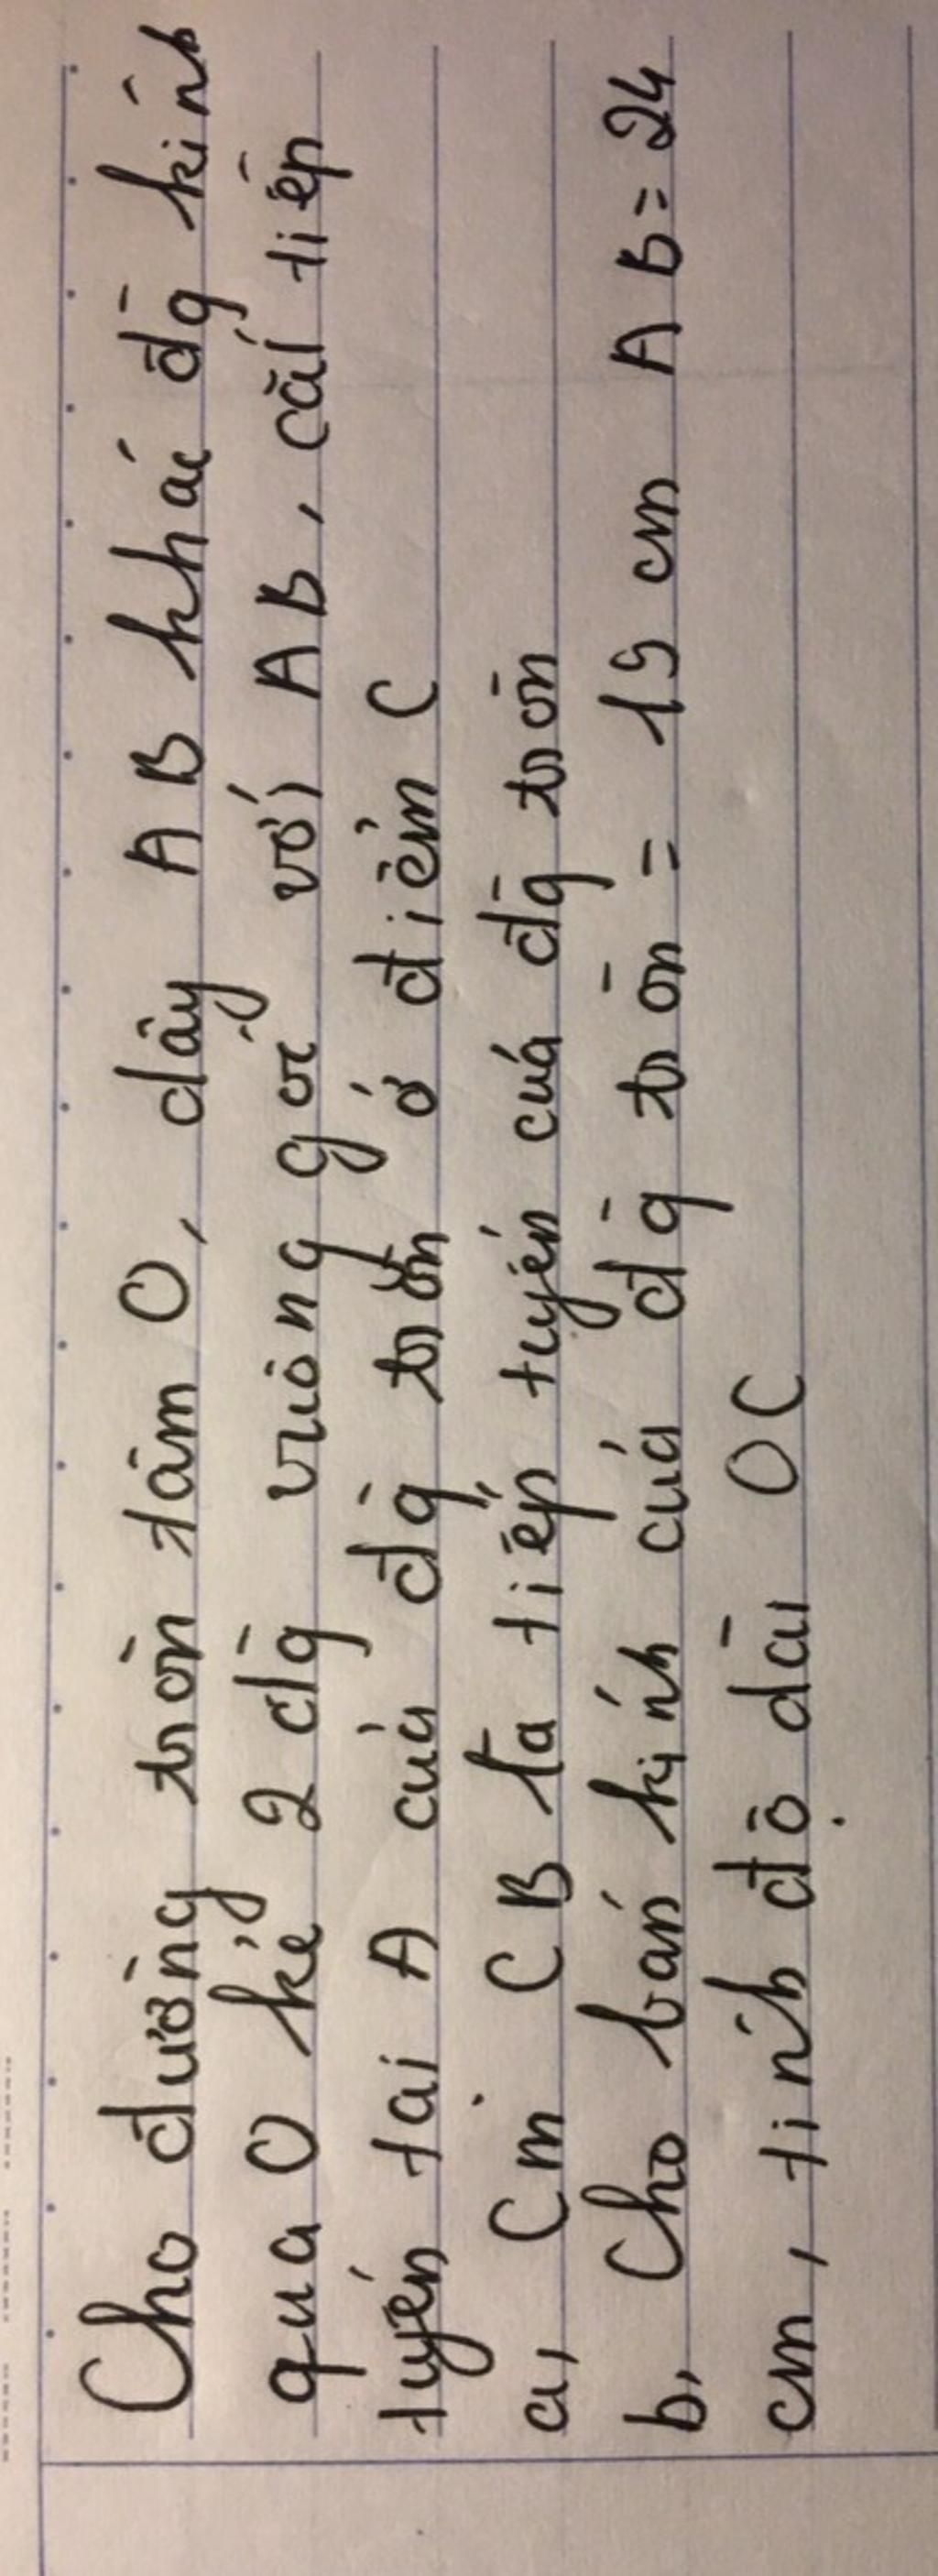 Cho đường tròn tâm O, dây AB khác đg kính
qua O kẻ 2 đg vuông góc với AB, cắt tiếp
tuyến tại A của đg tròn ở điểm C
a, Cm CB là tiếp tuyến của đg tròn
b, Cho bán kính của đg tròn = 15 cm AB = 24
cm, tính độ dài OC